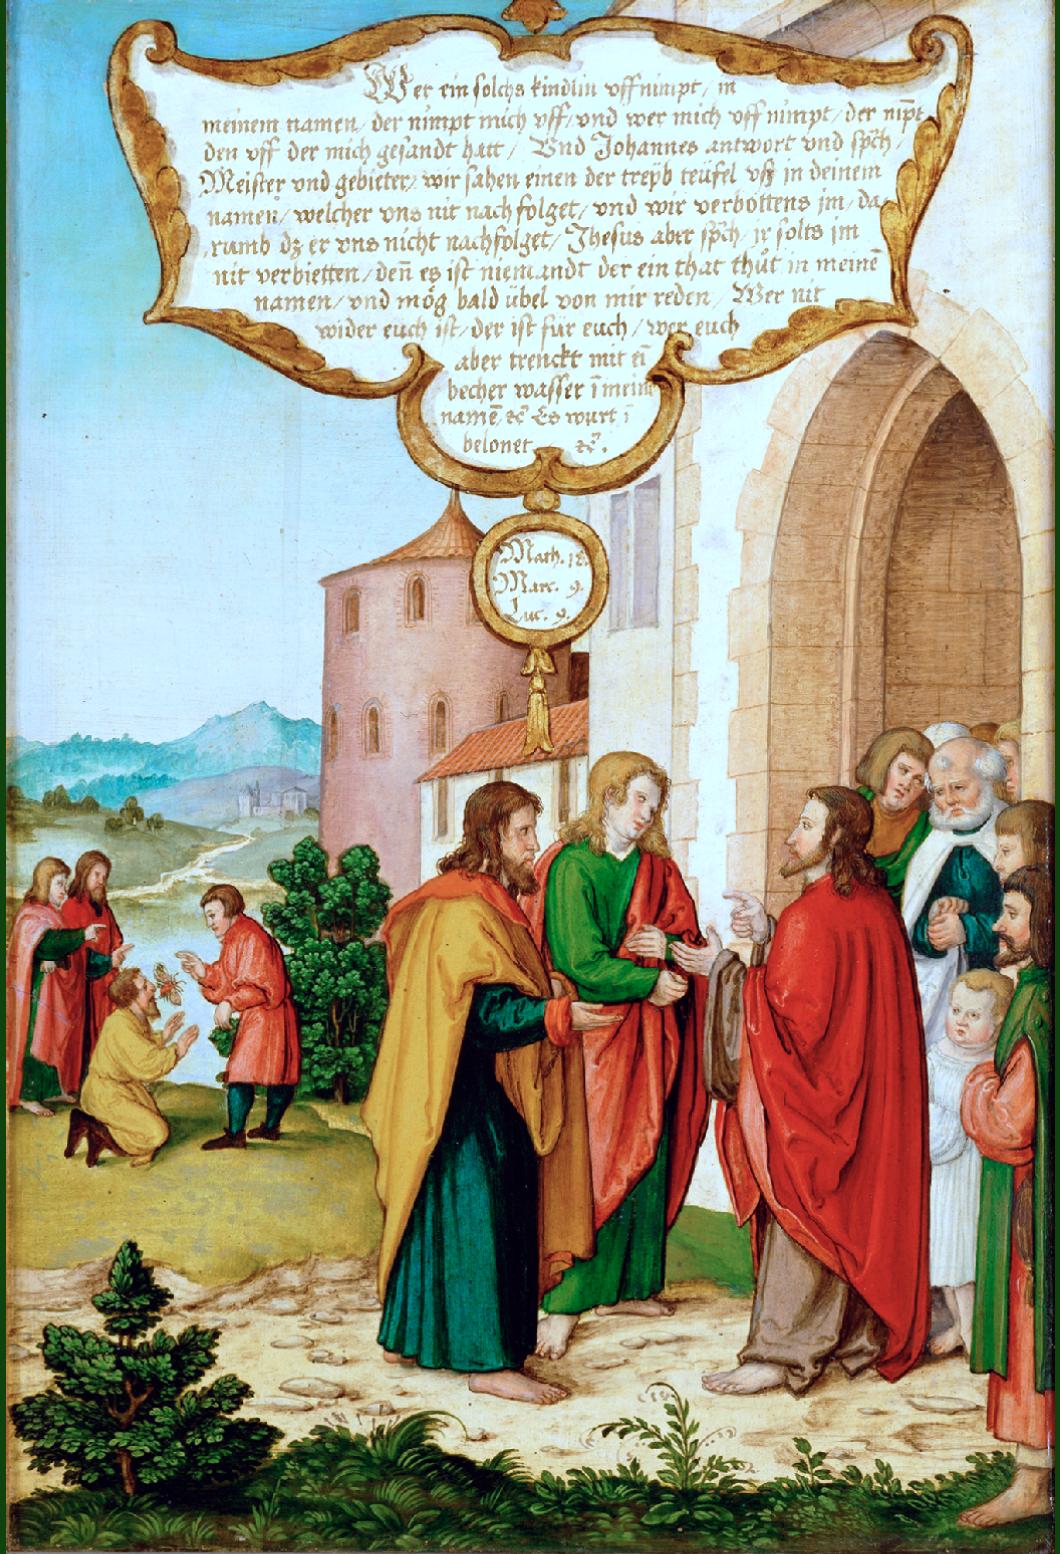 Wer ein solchs kindlin vffnimpt / in
meinem namen / der nimpt mich vff / vnd wer mich vff nimpt / der nip̄t
den vff der mich gesandt hatt / Vnd Johannes antwort vnd sp̄ch /
Meister vnd gebieter / wir sahen einen der treyb teüfel vß in deinem
namen / welcher vns nit nach folget / vnd wir verbottens jm / da
rumb dz er vns nicht nachfolget / Jhesus aber sp̄ch / jr solts im
nit verbietten / den̄ es ist niemandt der ein that thůt in meinē
namen / vnd mög bald übel von mir reden / Wer nit
wider euch ist / der ist für euch / wer euch
aber trenckt mit ein̄
becher wasser ī meinē
namē / ꝛc̄ Es wurt ī
belonet ꝛc̄.
Math. 18.
Marc. 9.
Luc. 9.